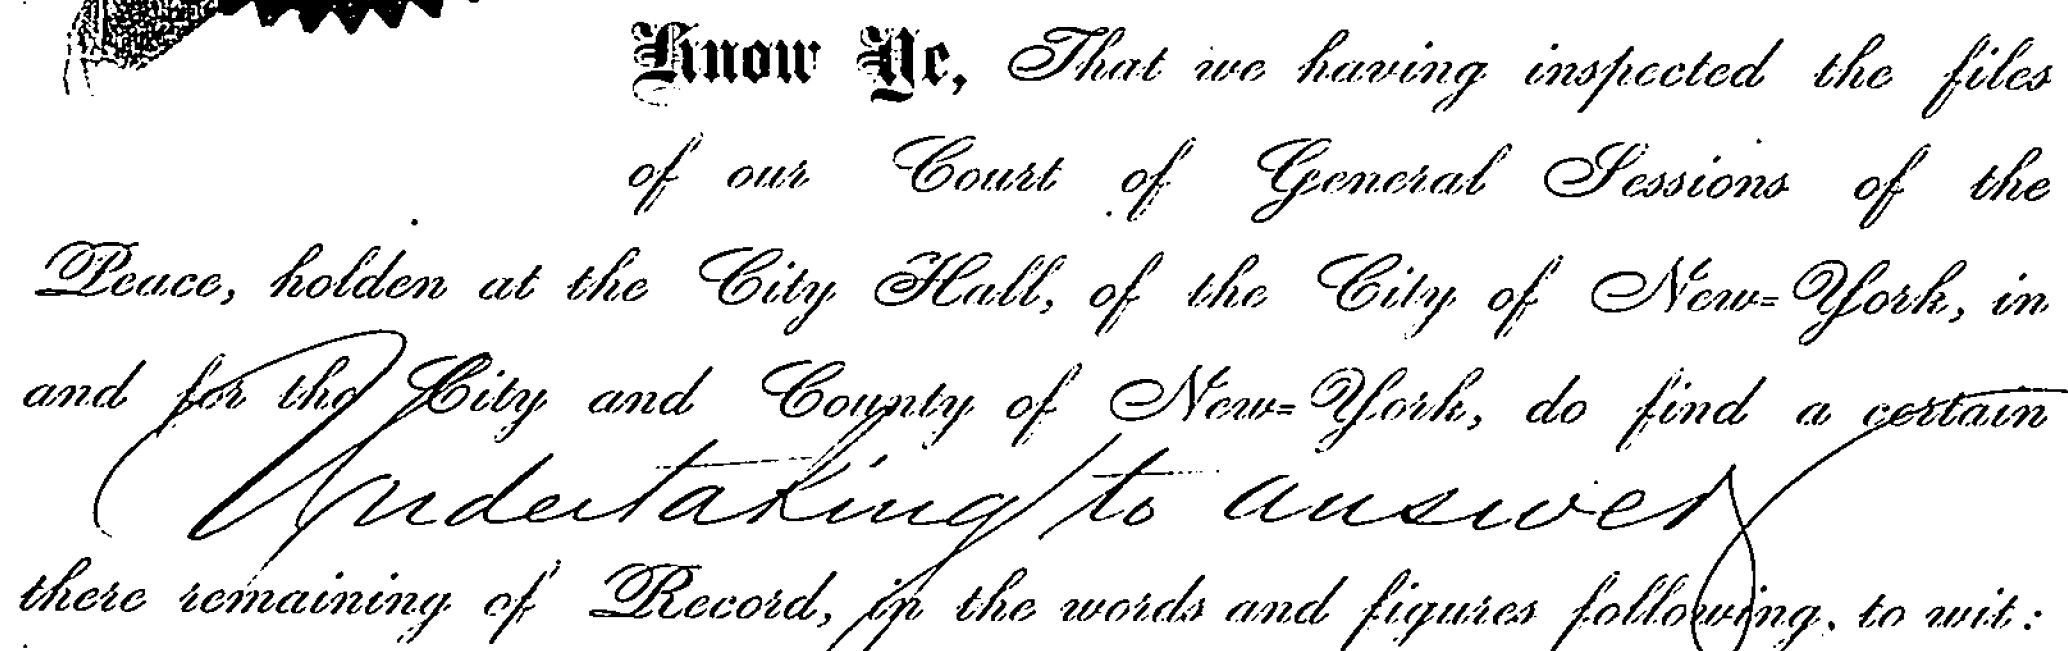 Know Ye, That we having inspected the files
of our Court of General Sessions of the
Peace, holden at the City Hall, of the City of New=York, in
and for the City and County of New=York, do find a certain
Undertaking to answer
there remaining of Record, in the words and figures following, to wit: